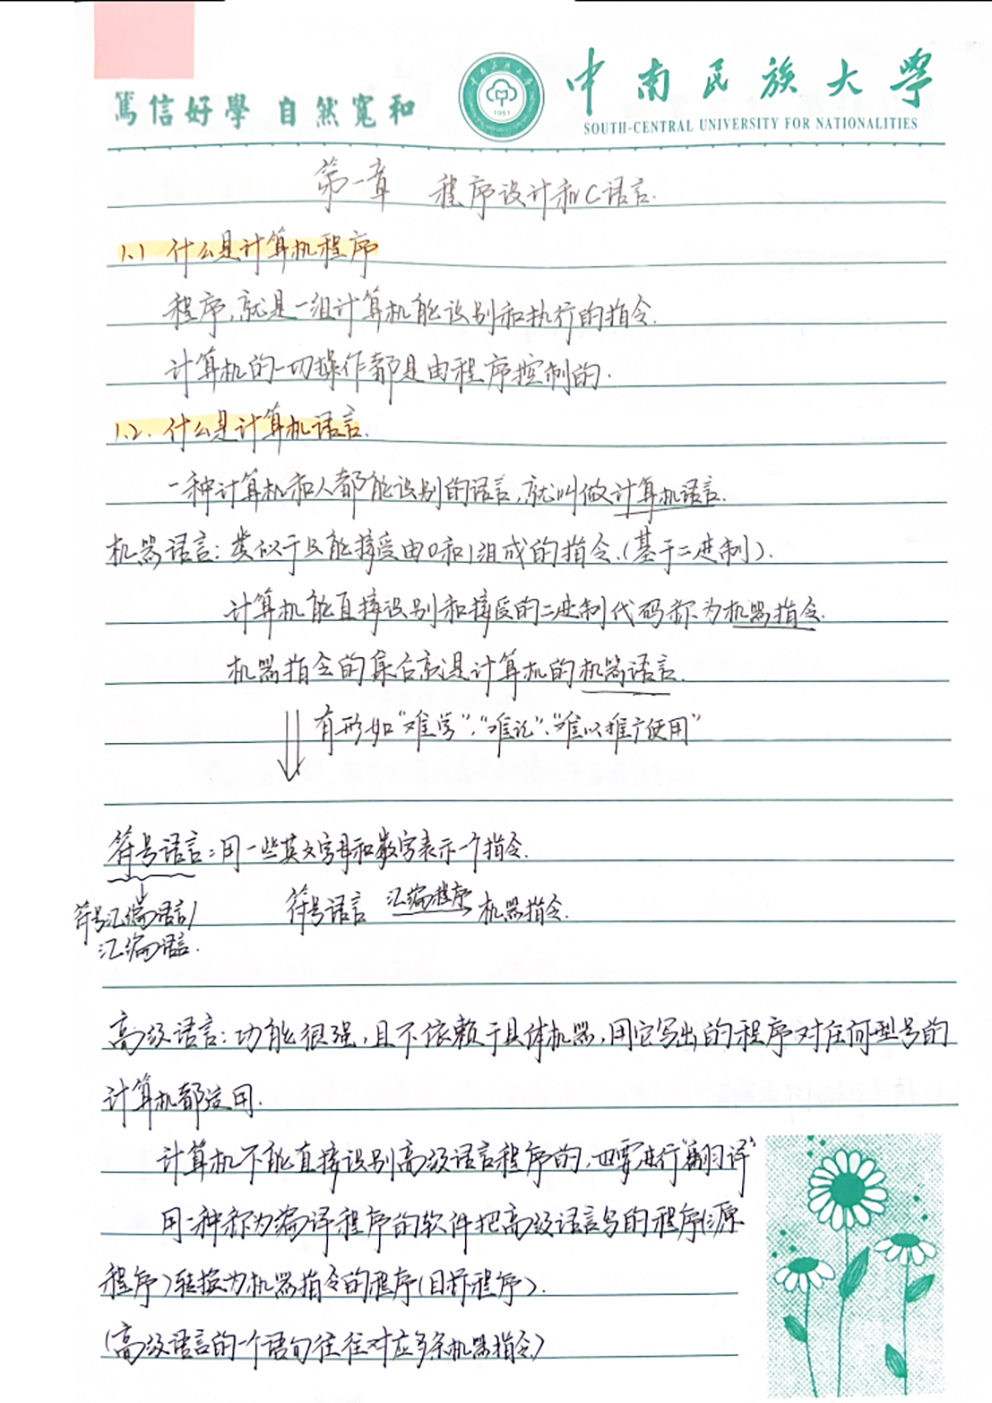 篤信好學 自然寬和
1951
中南民族大學
SOUTH-CENTRAL UNIVERSITY FOR NATIONALITIES
第一章 程序设计和C语言.
1.1 什么是计算机程序
程序,就是一组计算机能识别和执行的指令.
计算机的一切操作都是由程序控制的.
1.2. 什么是计算机语言.
一种计算机和人都能识别的语言,就叫做计算机语言.
机器语言:类似于只能接受由0和1组成的指令.(基于二进制).
计算机能直接识别和接受的二进制代码称为机器指令.
机器指令的集合就是计算机的机器语言.
有形如“难学”,“难记”,“难以推广使用”
符号语言:用一些英文字母和数字表示一个指令.
符号汇编语言/
汇编语言.
符号语言 汇编程序 机器指令.
高级语言:功能很强,且不依赖于具体机器,用它写出的程序对任何型号的
计算机都适用.
计算机不能直接识别高级语言程序的,也要进行“翻译”
用一种称为编译程序的软件把高级语言写的程序(源
程序)转换为机器指令的程序(目标程序).
(高级语言的一个语句往往对应多条机器指令)